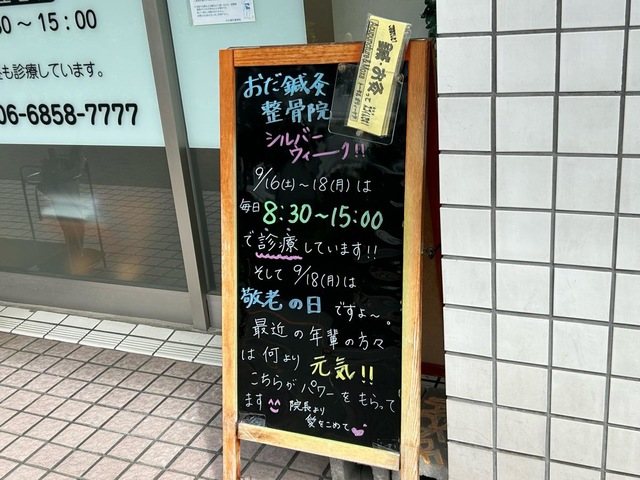 0~15:00
も診療しています。
06-6858-7777
おだ鍼灸
整骨院
シルバー
ウィーク!!
9/16(土)~18(月)は
毎日8:30~15:00
で診療しています!!
そして9/18(月)は
敬老の日ですよ~。
最近の年輩の方々
は何より元気!!
こちらがパワーをもらって
ます
院長より
愛をこめて
鍼・お灸